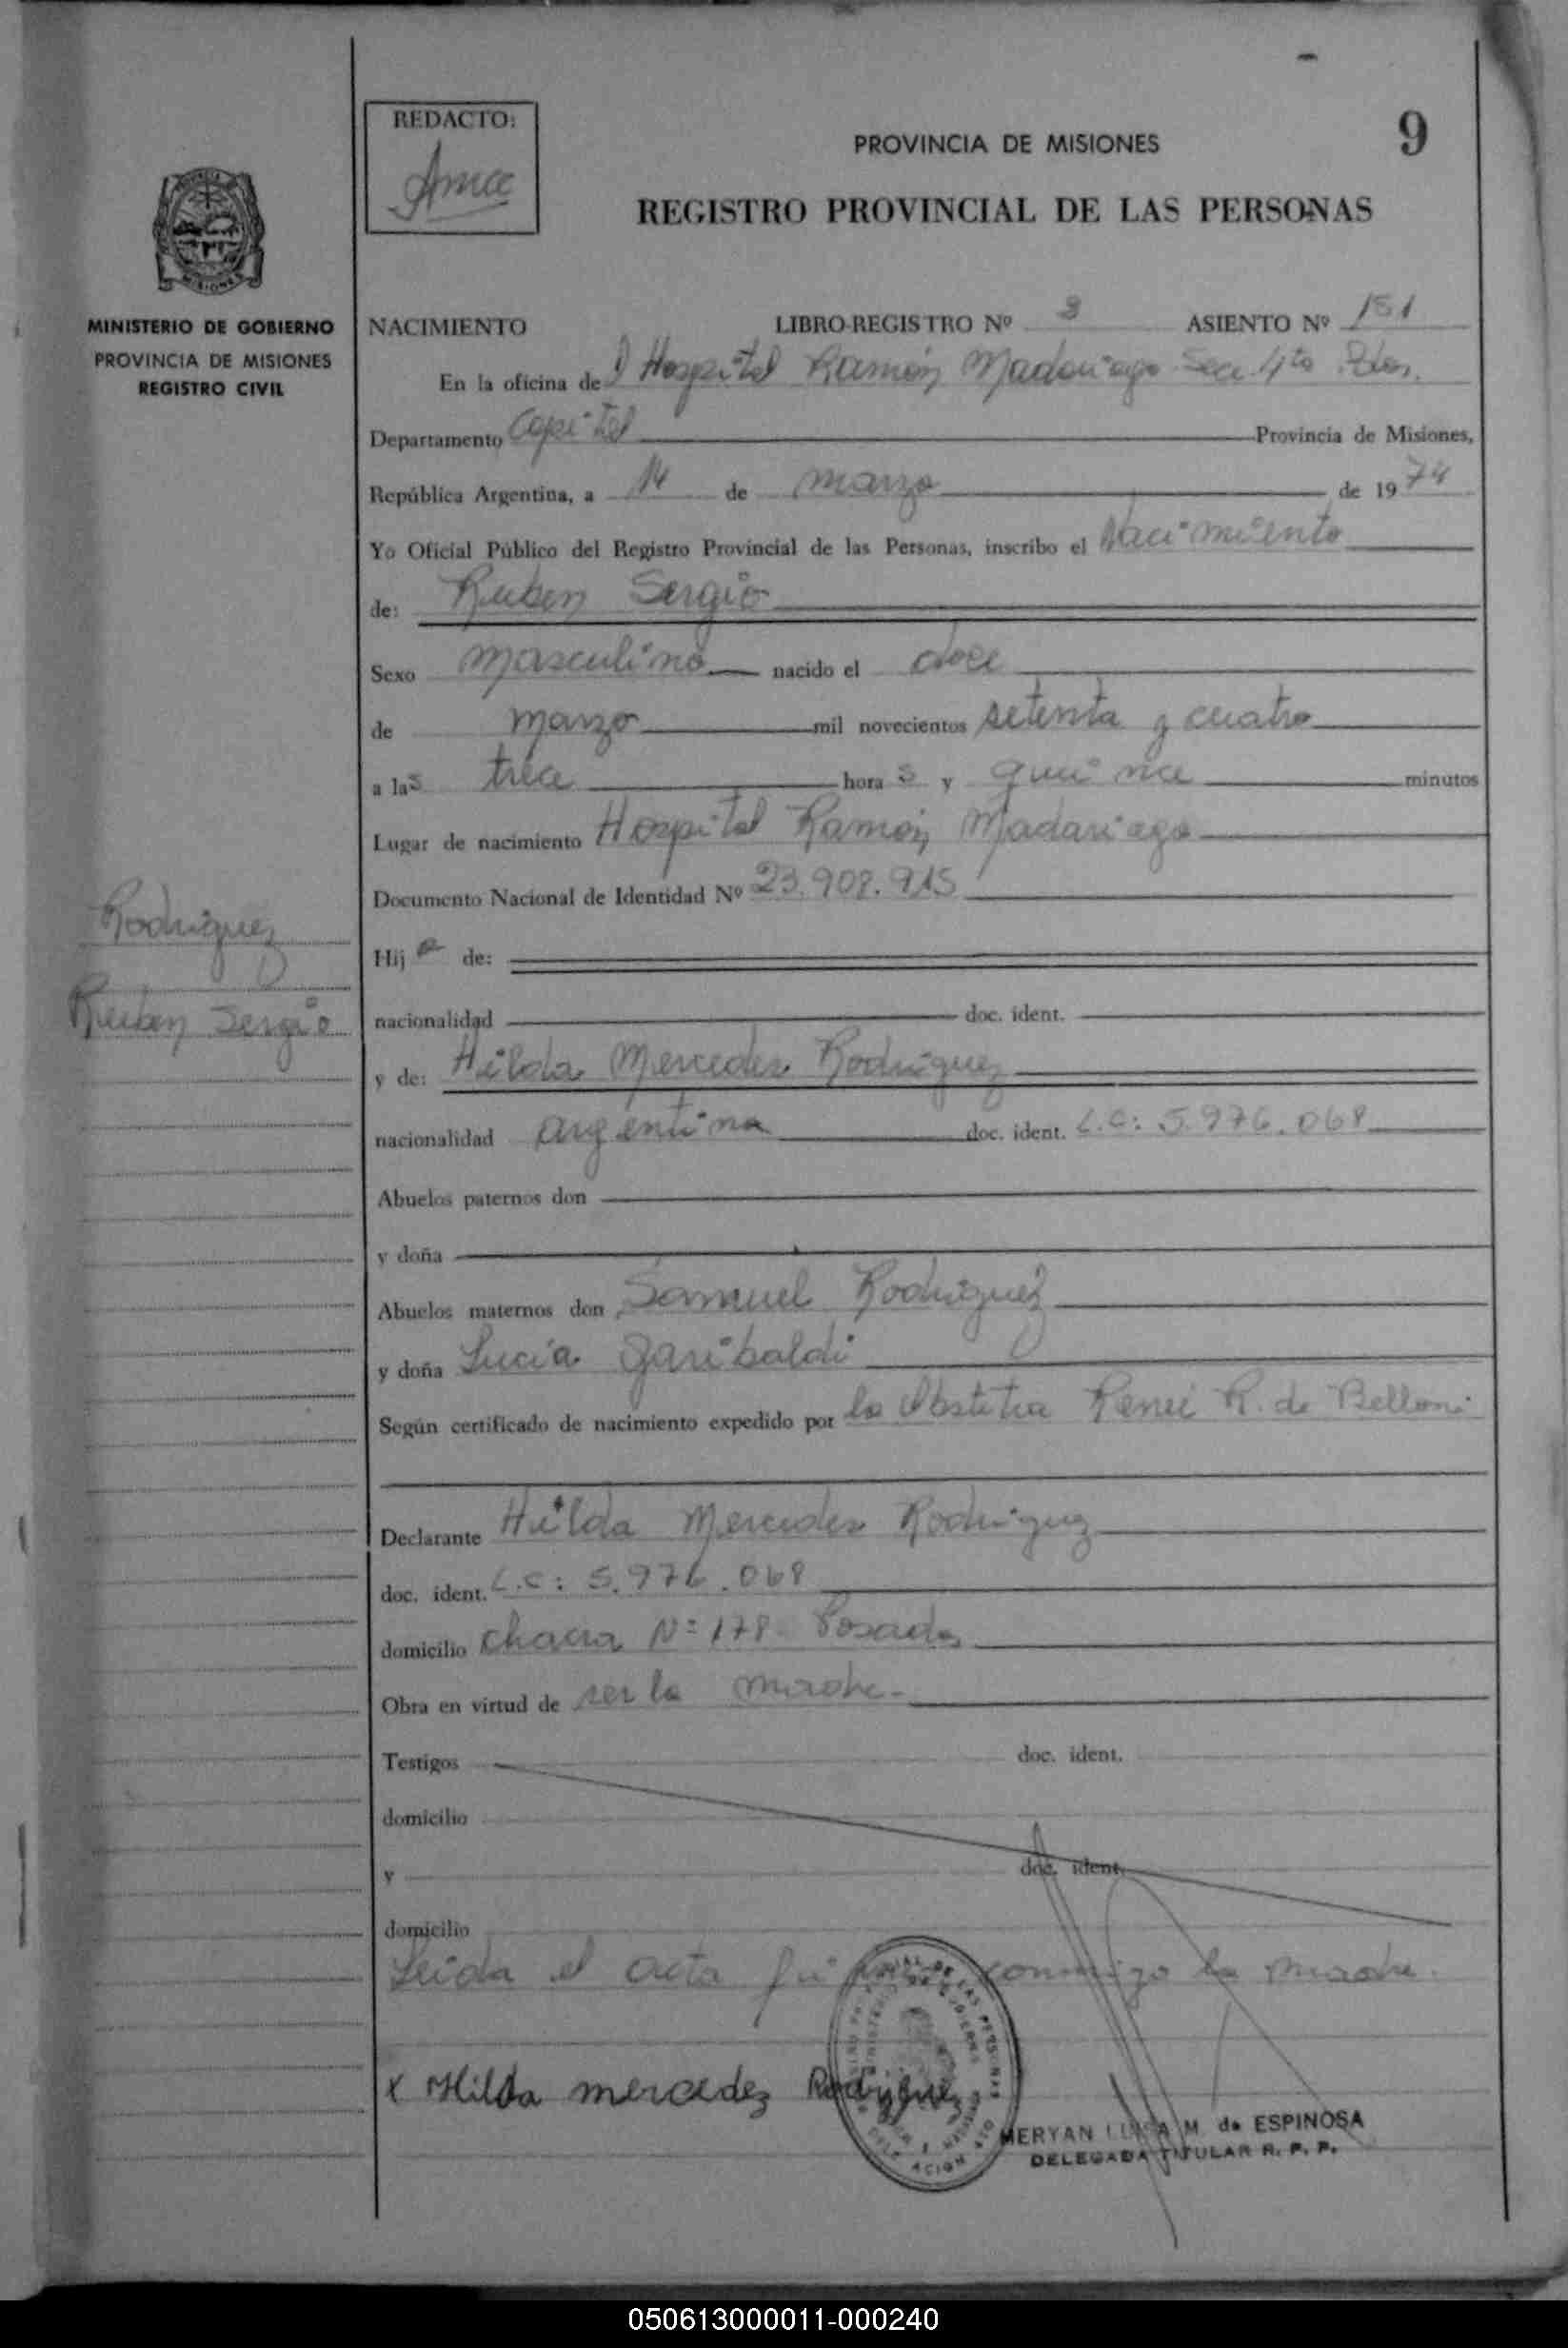 REDACTO:
PROVINCIA DE MISIONES
9
REGISTRO PROVINCIAL DE LAS PERSONAS
MISIONES
MINISTERIO DE GOBIERNO
PROVINCIA DE MISIONES
REGISTRO CIVIL
NACIMIENTO LIBRO-REGISTRO Nº 3 ASIENTO Nº 151
En la oficina de Hospital Ramón Madariaga Secc 4ta Pdas.
Departamento Capital Provincia de Misiones,
República Argentina, a 14 de marzo de 1974
Yo Oficial Público del Registro Provincial de las Personas, inscribo el Nacimiento
de: Ruben Sergio
Sexo masculino nacido el doce
de marzo mil novecientos setenta y cuatro
a las trece horas y quince minutos
Lugar de nacimiento Hospital Ramón Madariaga
Documento Nacional de Identidad Nº 23.908.915
Rodriguez
Ruben Sergio
Hijo de:
nacionalidad doc. ident.
y de: Hilda Mercedes Rodriguez
nacionalidad argentina doc. ident. L.C: 5.976.068
Abuelos paternos don
y doña
Abuelos maternos don Samuel Rodriguez
y doña Lucia Garibaldi
Según certificado de nacimiento expedido por la Obstetra Reneé R. de Belloni
Declarante Hilda Mercedes Rodriguez
doc. ident. L.C: 5.976.068
domicilio Chacra Nº 178 Posadas
Obra en virtud de ser la madre.-
Testigos doc. ident.
domicilio
y doc. ident.
domicilio
Leida el acta firma conmigo la madre.
x Hilda mercedez Rodriguez
MERYAN LUISA M. de ESPINOSA
DELEGADA TITULAR R. P. P.
050613000011-000240